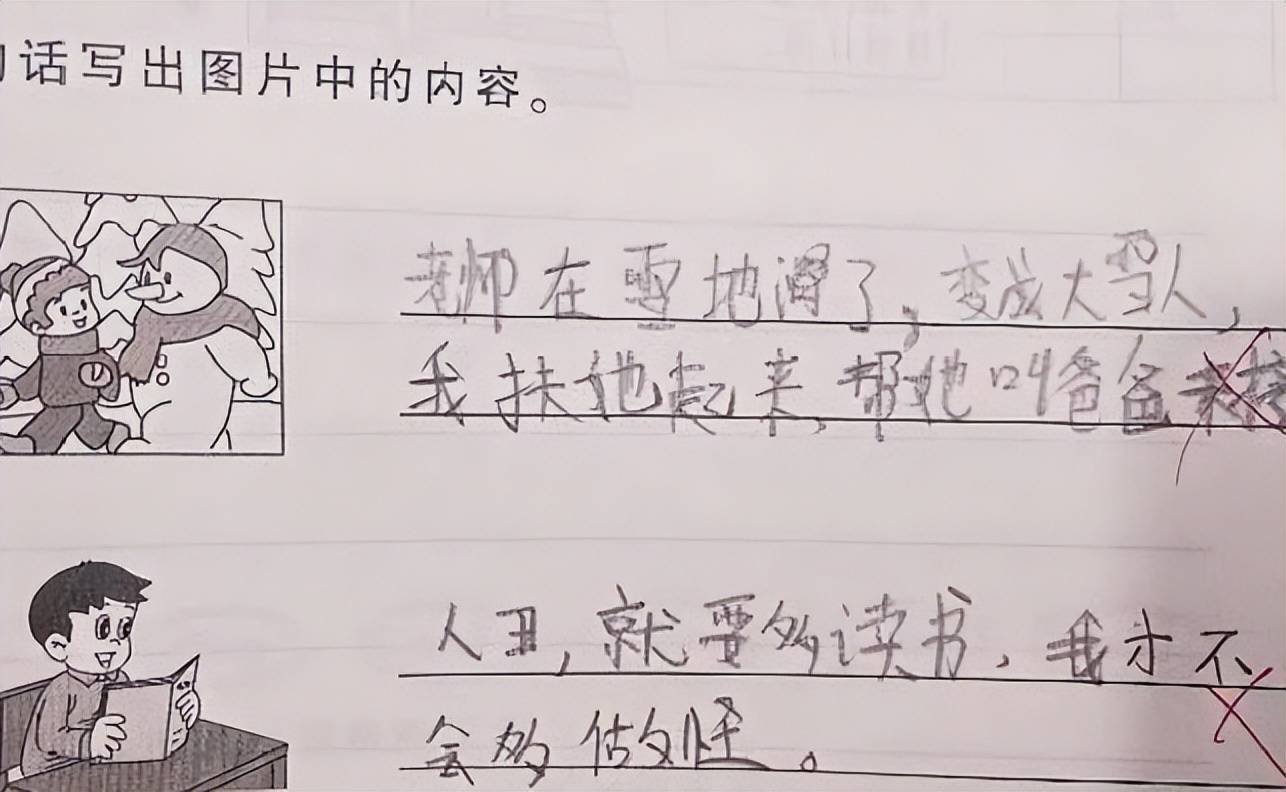 话写出图片中的内容。
老师在雪地滑了,变成大雪人,
我扶她起来,帮她叫爸爸来
人丑,就要多读书,我才不
会多做怪。